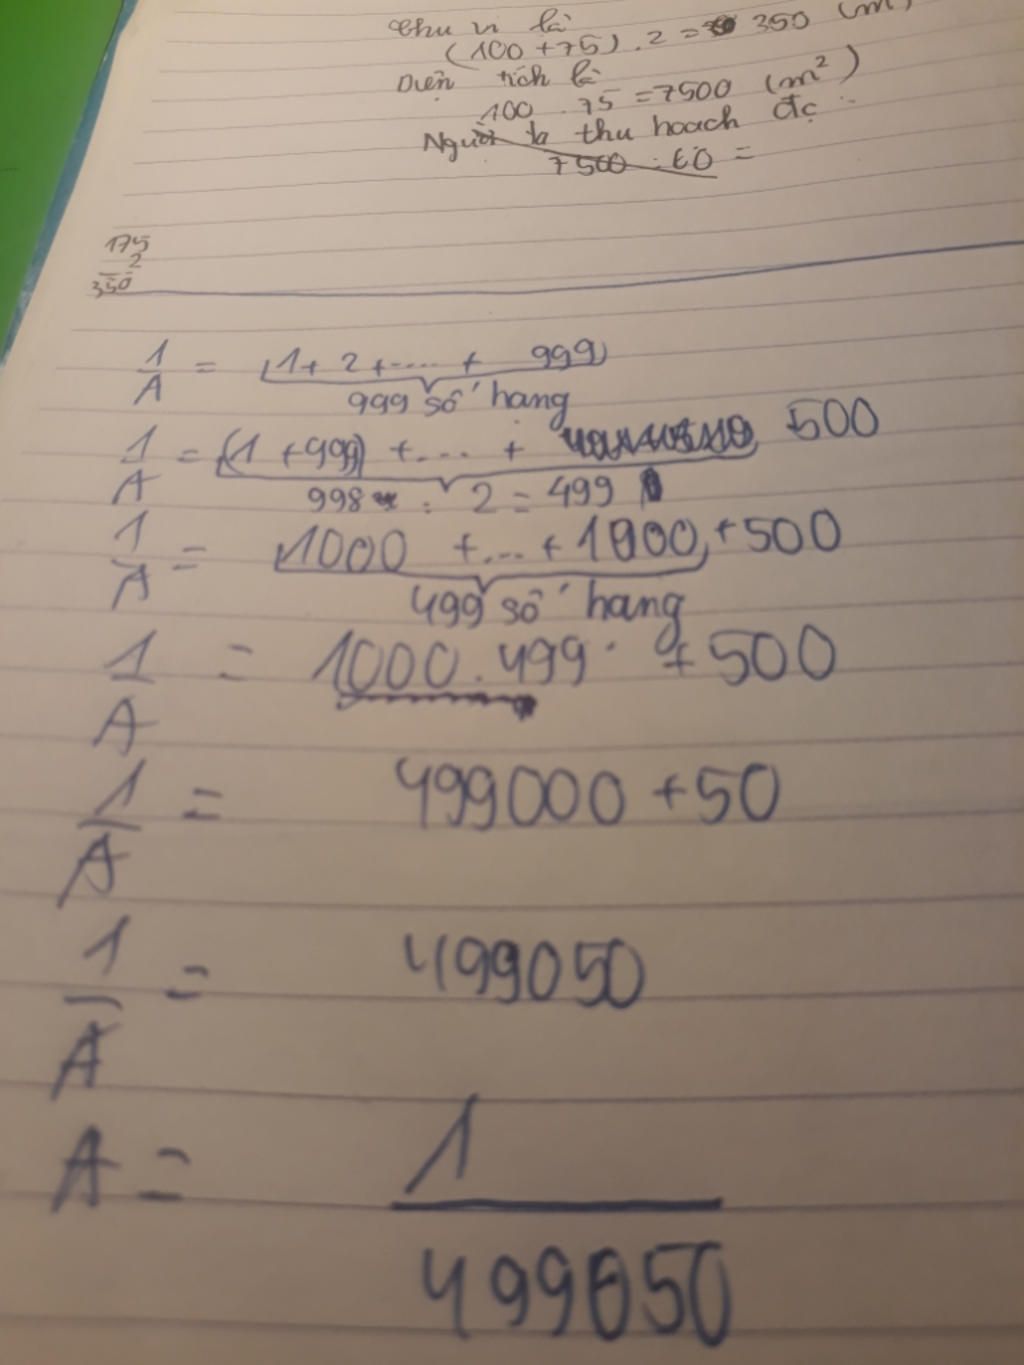 Chu vi là
(100 + 75) . 2 = 350 (m)
Diện tích là
100 . 75 = 7500 (m²)
Người ta thu hoạch đc :
7500 : 60 =
175
2
350
1/A = 1 + 2 + .... + 999
999 số hạng
1/A = (1 + 999) + .... + 500
998 : 2 = 499
1/A = 1000 + ... + 1000 + 500
499 số hạng
1/A = 1000 . 499 + 500
1/A = 499000 + 50
1/A = 499050
A = 1/499050